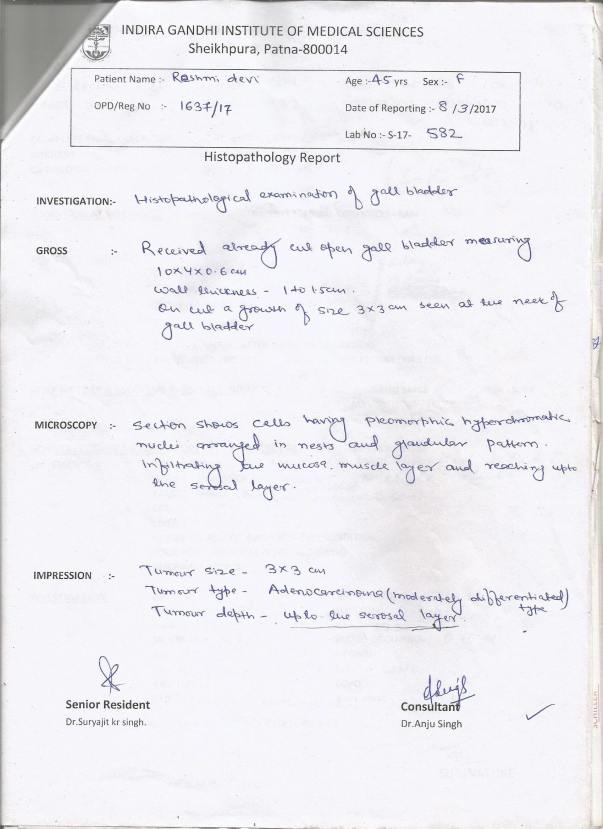 INDIRA GANDHI INSTITUTE OF MEDICAL SCIENCES
Sheikhpura, Patna-800014
Patient Name :- Rashmi devi Age :-45 yrs Sex :- F
OPD/Reg No :- 1637/17 Date of Reporting :- 8/3/2017
Lab No :- S-17- 582
Histopathology Report
INVESTIGATION:- Histopathological examination of gall bladder
GROSS :- Received already cut open gall bladder measuring
10x4x0.6 cm
Wall thickness - 1 to 1.5cm.
On cut a growth of size 3x3 cm seen at the neck of
gall bladder
MICROSCOPY :- Section shows cells having pleomorphic hyperchromatic
nuclei arranged in nests and glandular pattern.
Infiltrating the mucosa, muscle layer and reaching upto
the serosal layer.
IMPRESSION :- Tumour size - 3x3 cm
Tumour type - Adenocarcinoma (moderately differentiated)
type
Tumour depth - upto the serosal layer.
Senior Resident Consultant
Dr.Suryajit kr singh. Dr.Anju Singh